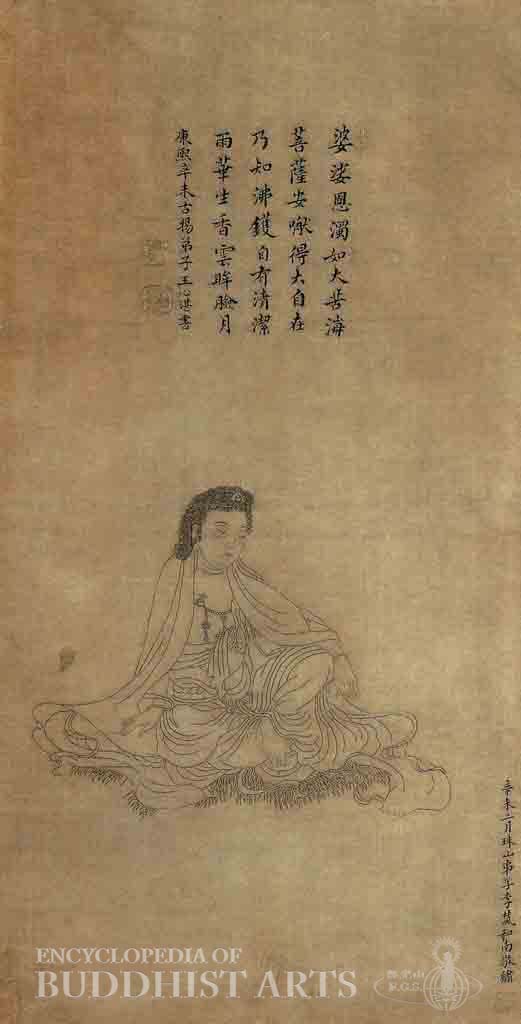 婆娑恩濁如大苦海
菩薩安得大自在
乃知沸鑊自有清潔
雨華生香雲眸臉月
康熙辛未古揚弟子王心湛書
辛未二月珠山弟子李和南敬繡
ENCYCLOPEDIA OF
BUDDHIST ARTS
佛光山
F.G.S.